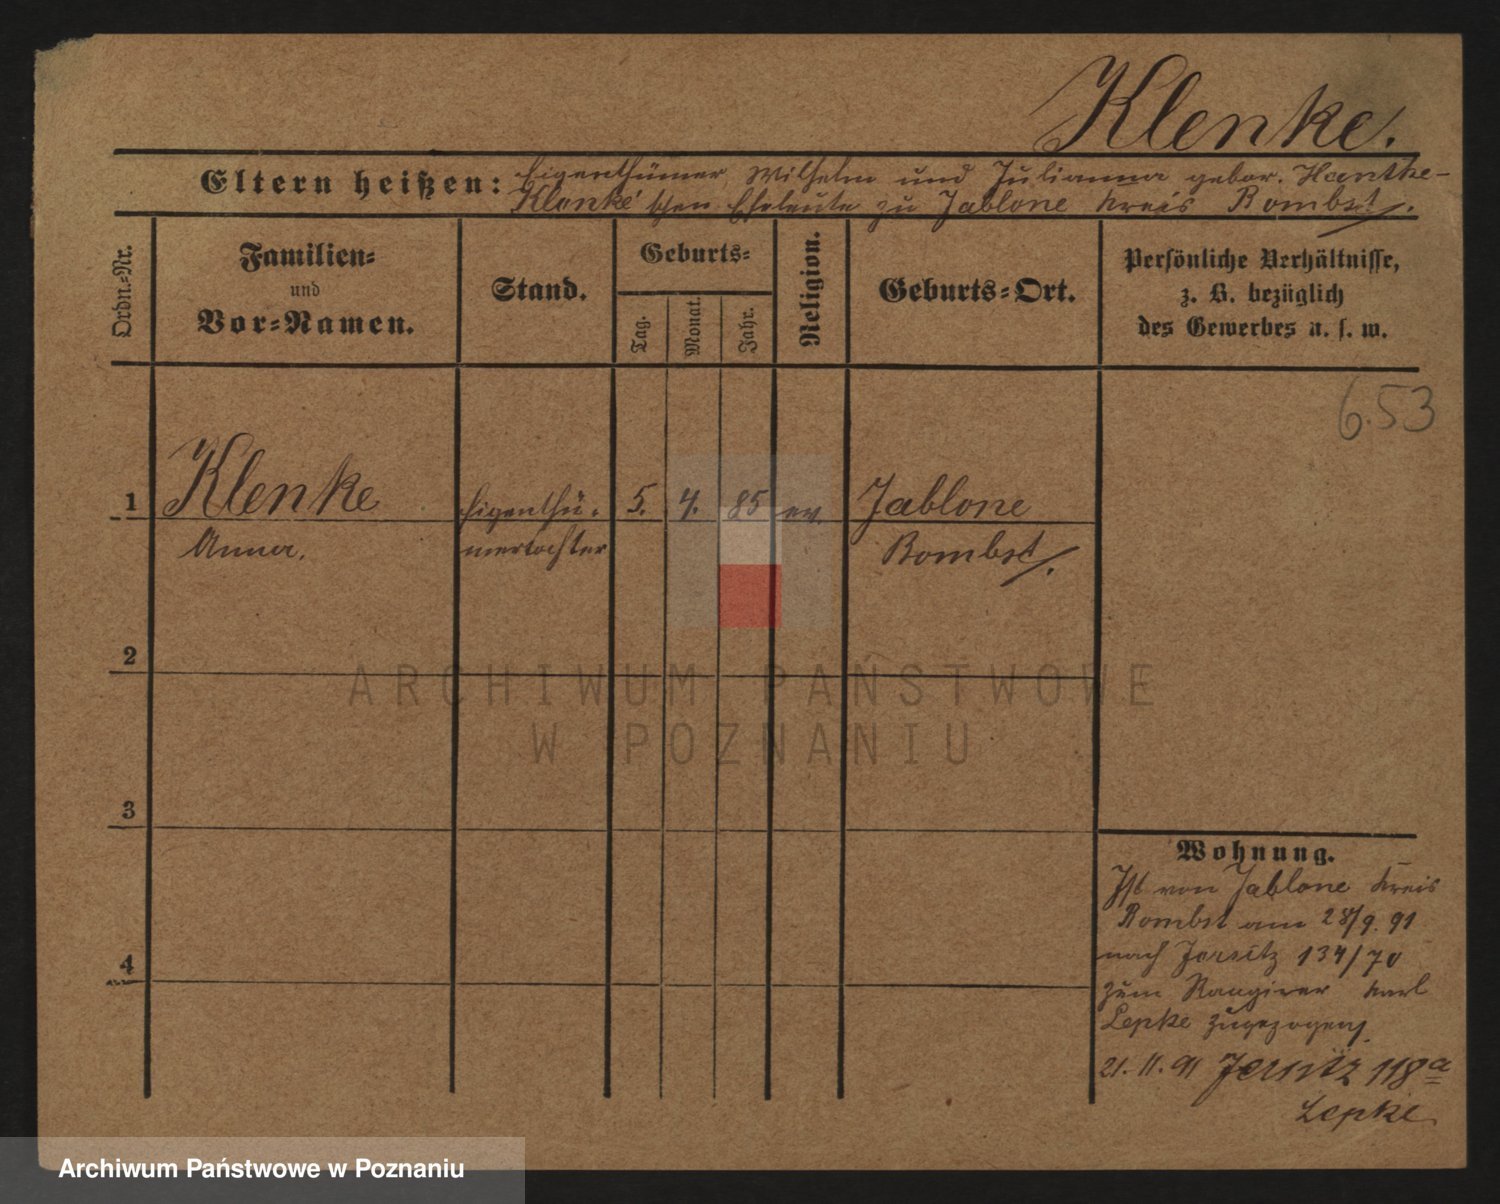 Klenke.
Eltern heißen: Eigenthümer Wilhelm und Julianna gebor. Hantke-
Klenke'schen Eheleute zu Jablone Kreis Bombst.
Ordn.-Nr.
Familien-
und
Vor-Namen.
Stand.
Geburts-
Tag.
Monat.
Jahr.
Religion.
Geburts-Ort.
Persönliche Verhältnisse,
z. B. bezüglich
des Gewerbes u. s. w.
6.53
1 Klenke Eigenthü- 5. 4. 85 ev. Jablone
Anna. mertochter Bombst.
2
3
4
Wohnung.
Ist von Jablone Kreis
Bombst am 28/9. 91
nach Jersitz 134/70
zum Rangirer Karl
Lepke zugezogen
21.11.91 Jersitz 118a
Lepke.
ARCHIWUM PAŃSTWOWE
W POZNANIU
Archiwum Państwowe w Poznaniu